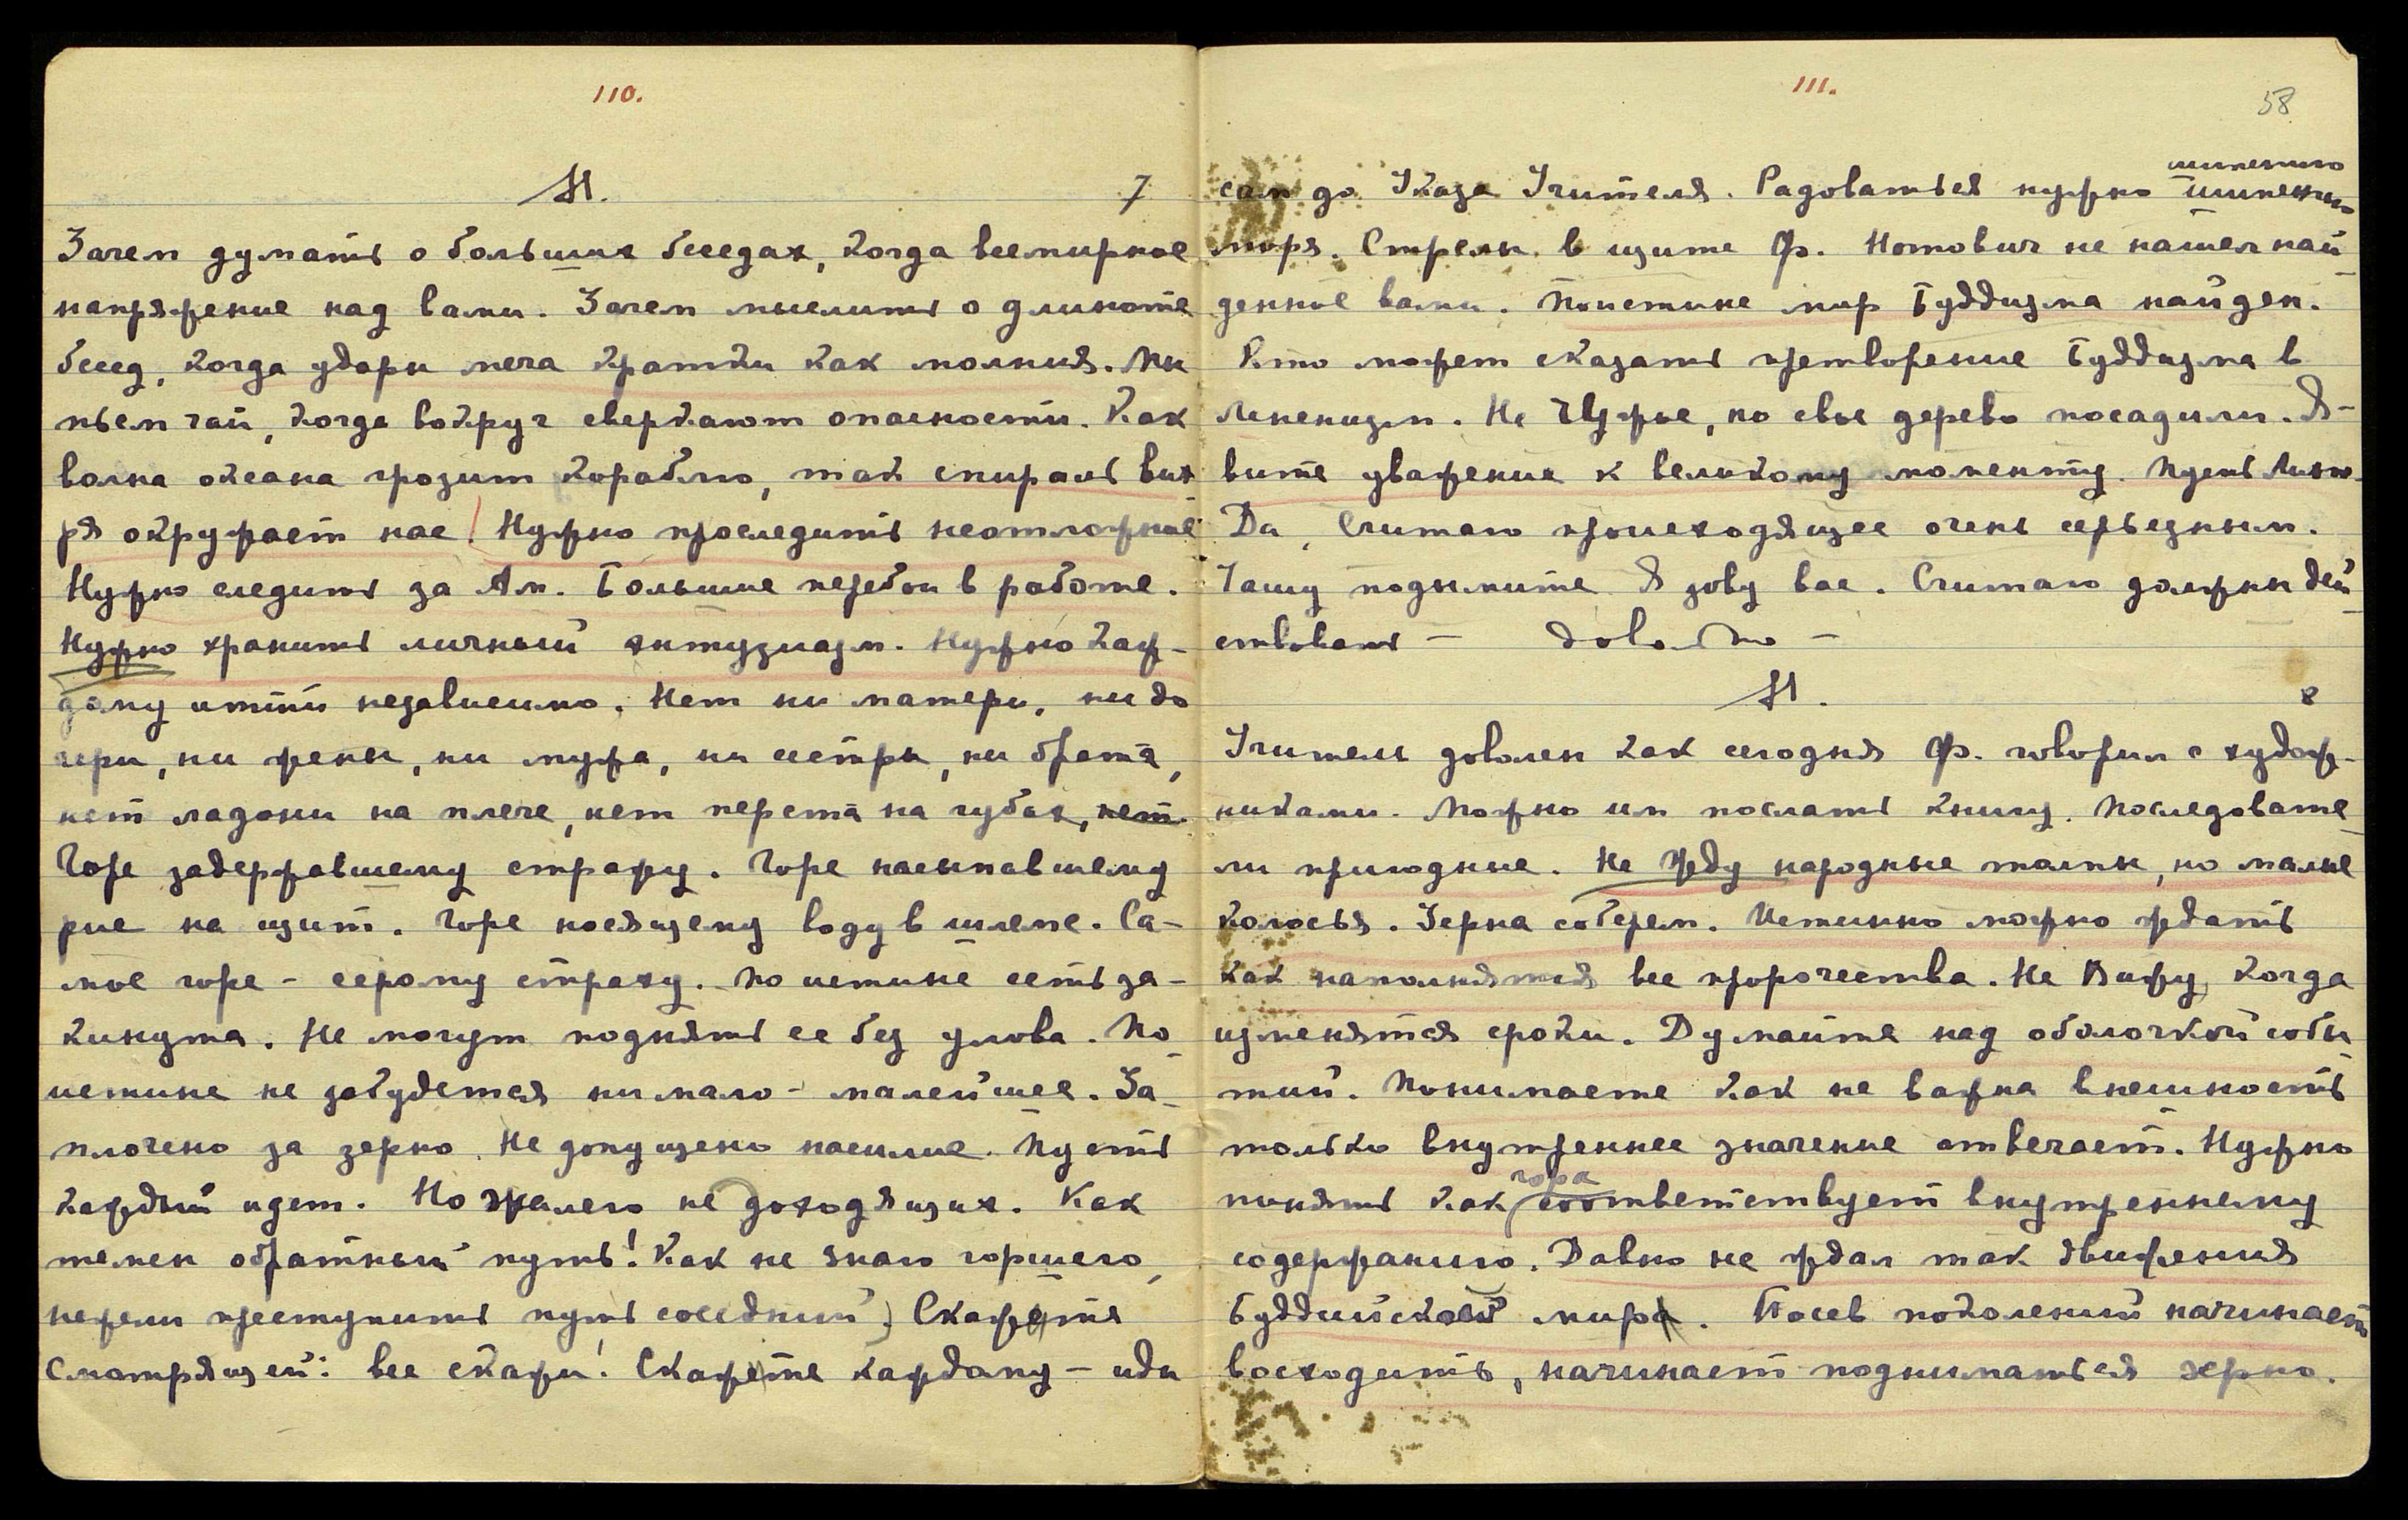 110.
М. 7
Зачем думать о больших беседах, когда всемирное
напряжение над вами. Зачем мыслить о длинноте
бесед, когда удары меча кратки как молния. Мы
пьем чай, когда вокруг сверкают опасности. Как
волна океана грозит кораблю, так спираль вих
ря окружает нас. Нужно проследить неотложное
Нужно следить за Ам. Большие перебои в работе.
Нужно хранить личный энтузиазм. Нужно каж-
дому итти независимо. Нет ни матери, ни до
чери, ни жены, ни мужа, ни сестры, ни брата,
нет ладони на плече, нет перста на губах, нет
Горе задержавшему стражу. Горе насыпавшему
рис на щит. Горе носящему воду в шлеме. Са-
мое горе - серому страху. Поистине сеть за-
кинута. Не могут поднять ее без улова. По
истине не забудется ни мало-малейшее. За-
плочено за зерно. Не допущено насилие. Пусть
каждый идет. Но жалею не доходящих. Как
темен обратный путь! Как не знаю горшего,
нежели преступить путь соседний) Скажете
смотрящей: все скажи! Скажете каждому - иди
111.
58
сам до Указа Учителя. Радоваться нужно шипению
шипению
моря. Стрелы в щите Ф. Нотович не нашел най
денное вами. Поистине мир Буддизма найден.
Кто может сказать претворение Буддизма в
Ленинизм. Не чужое, но свое дерево посадили. Я-
вите уважение к великому моменту. Пусть
Да, Считаю происходящее очень серьезным.
Чашу подымите Я зову вас. Считаю должны дей
ствовать - довольно -
М. 8
Учитель доволен как сегодня Ф. говорил с худож-
никами. Можно им послать книгу. Последовате
ли пригодные. Не жду народные толпы, но малые
колосья. Зерна соберем. Истинно можно ждать
как наполнятся все пророчества. Не вижу, когда
изменятся сроки. Думайте над оболочкой собы
тий. Понимаете как не важна внешность
только внутреннее значение отвечает. Нужно
гора
понять как соответствует внутреннему
содержанию. Давно не ждал так движения
Буддийского мира. Посев поколений начинает
восходить, начинает подниматься зерно.